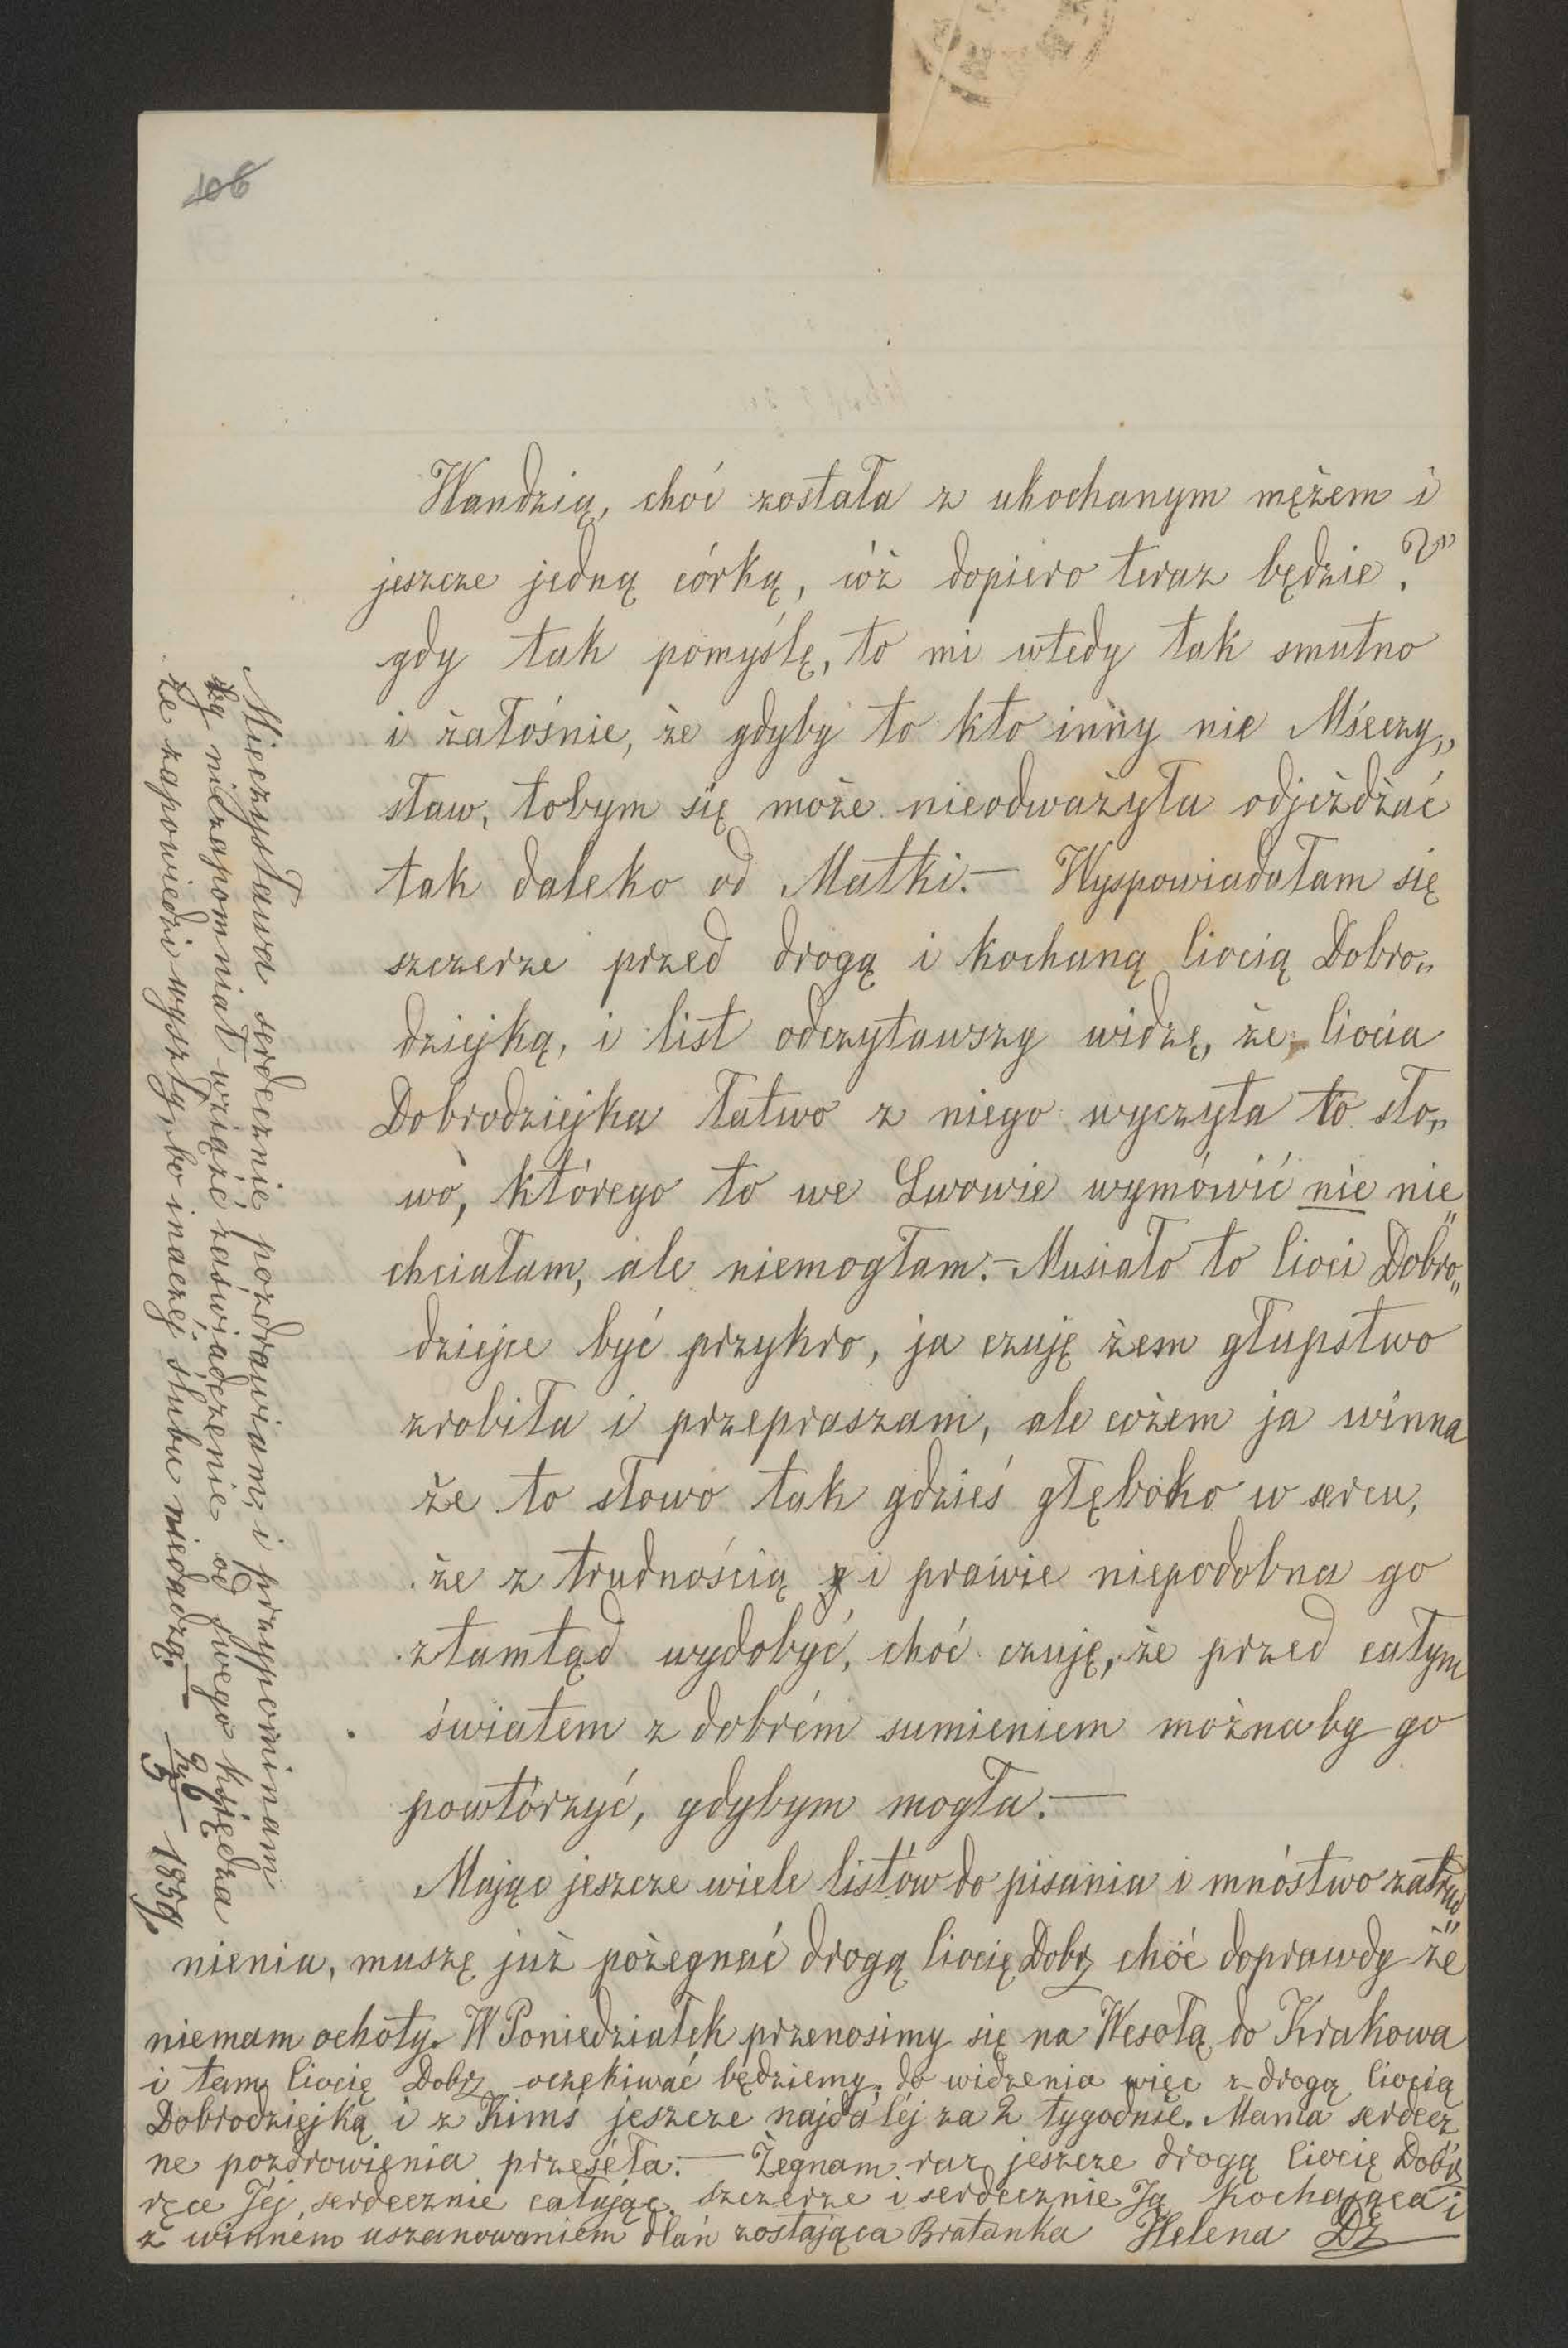 106
Wandzią, choć została z ukochanym mężem i
jeszcze jedną córką, cóż dopiero teraz będzie?"
gdy tak pomyślę, to mi wtedy tak smutno
i żałośnie, że gdyby to kto inny nie Mieczy„
sław, tobym się może nieodważyła odjeżdżać
tak daleko od Matki.— Wyspowiadałam się
szczerze przed drogą i kochaną Ciocią Dobro„
dziejką, i list odczytawszy widzę, że Ciocia
Dobrodziejka łatwo z niego wyczyta to sło„
wo, którego to we Lwowie wymówić nie nie„
chciałam, ale niemogłam.— Musiało to Cioci Dobro„
dziejce być przykro, ja czuję żem głupstwo
zrobiła i przepraszam, ale cożem ja winna
że to słowo tak gdzieś głęboko w sercu,
że z trudnością i prawie niepodobna go
ztamtąd wydobyć, choć czuję, że przed całym
światem z dobrém sumieniem można by go
powtórzyć, gdybym mogła.—
Mając jeszcze wiele listów do pisania i mnóstwo zatrud„
nienia, muszę już pożegnać drogą Ciocię Dobr choć doprawdy że
niemam ochoty. W Poniedziałek przenosimy się na Wesołą do Krakowa
i tam Ciocię Dobr oczekiwać będziemy, do widzenia więc z drogą Ciocią
Dobrodziejką i z Kimś jeszcze najdaléj za 2 tygodnie. Mama serdecz
ne pozdrowienia przeséła.— Żegnam raz jeszcze drogą Ciocię Dobr
ręce Jéj serdecznie całując, szczerze i serdecznie Ją kochająca i
z winnem uszanowaniem dlań zostająca Bratanka Helena Dz
Mieczysława serdecznie pozdrawiam, i przypominam
by niezapomniał wziąźć zaświadczenie od swego księdza
że zapowiedzi wyszły, bo inaczej ślubu niedadzą.— 1859